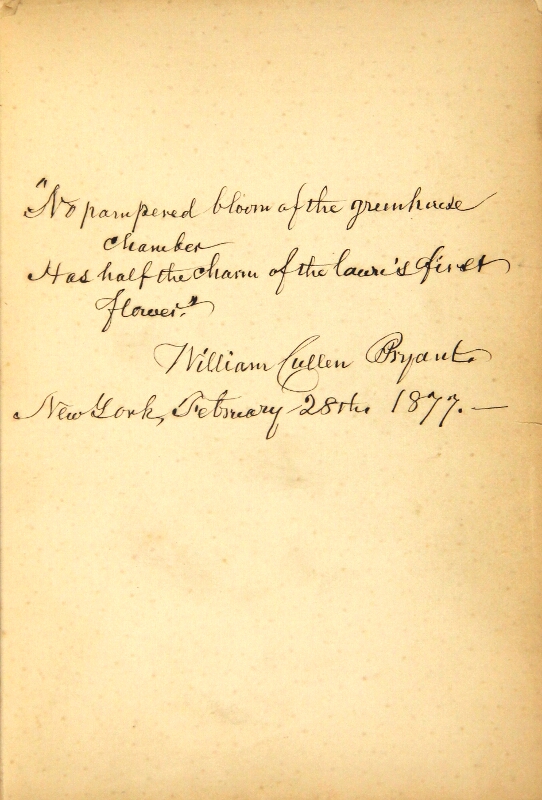 "No pampered bloom of the greenhouse
chamber
Has half the charm of the lawn's first
flower."
William Cullen Bryant.
New York, February 28th. 1877.—